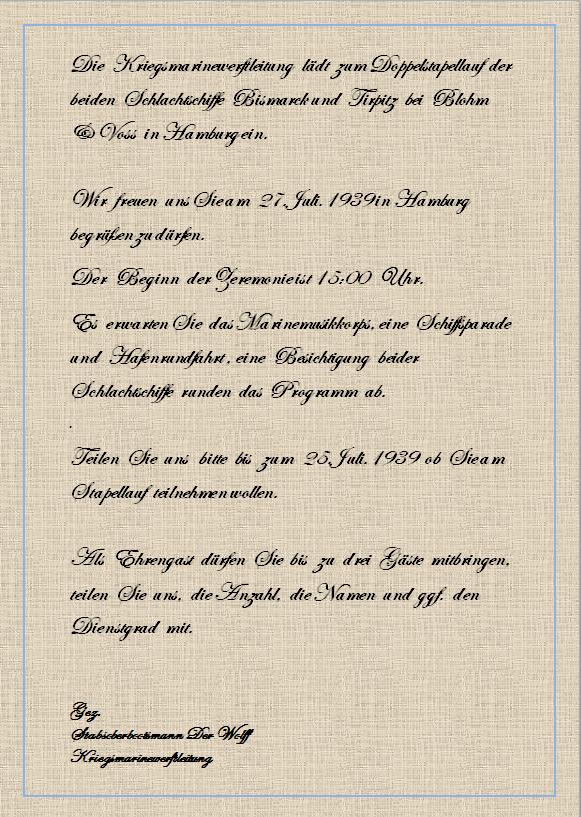 Die Kriegsmarinewerftleitung lädt zum Doppelstapellauf der
beiden Schlachtschiffe Bismarck und Tirpitz bei Blohm
& Voss in Hamburg ein.
Wir freuen uns Sie am 27. Juli. 1939 in Hamburg
begrüßen zu dürfen.
Der Beginn der Zeremonie ist 15:00 Uhr.
Es erwarten Sie das Marinemusikkorps, eine Schiffsparade
und Hafenrundfahrt, eine Besichtigung beider
Schlachtschiffe runden das Programm ab.
.
Teilen Sie uns bitte bis zum 25. Juli. 1939 ob Sie am
Stapellauf teilnehmen wollen.
Als Ehrengast dürfen Sie bis zu drei Gäste mitbringen,
teilen Sie uns, die Anzahl, die Namen und ggf. den
Dienstgrad mit.
Gez.
Stabsoberbootsmann Der Wolff
Kriegsmarinewerftleitung